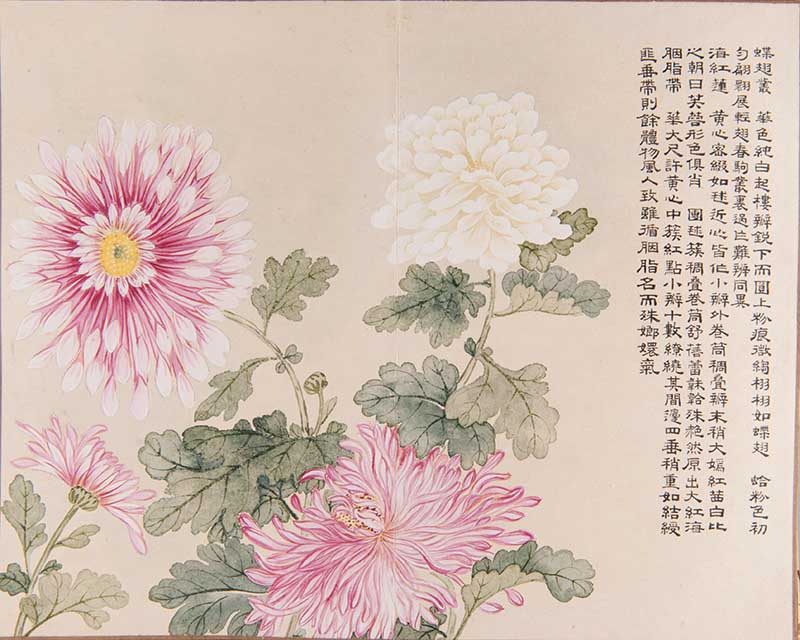 蝶翅叢　華色純白起樓瓣銳下而圓上粉痕微縐栩栩如蝶翅　蛤粉色初
勻翩翾展輕翅春駒叢裏過亡難辨同異
海紅蓮　黃心密綴如毬近心皆作小瓣外卷筒稠疊瓣末稍大嫣紅苗白比
之朝日芙蓉形色俱肖　團毬簇稠疊卷筒舒蓓蕾韎韐洙艳然原出大紅海
胭脂帶　華大尺許黃心中簇紅點小瓣十數繚繞其間邊四垂稍重如結綬
匪垂帶則餘體物風人致雖循胭脂名而殊嫏嬛氣